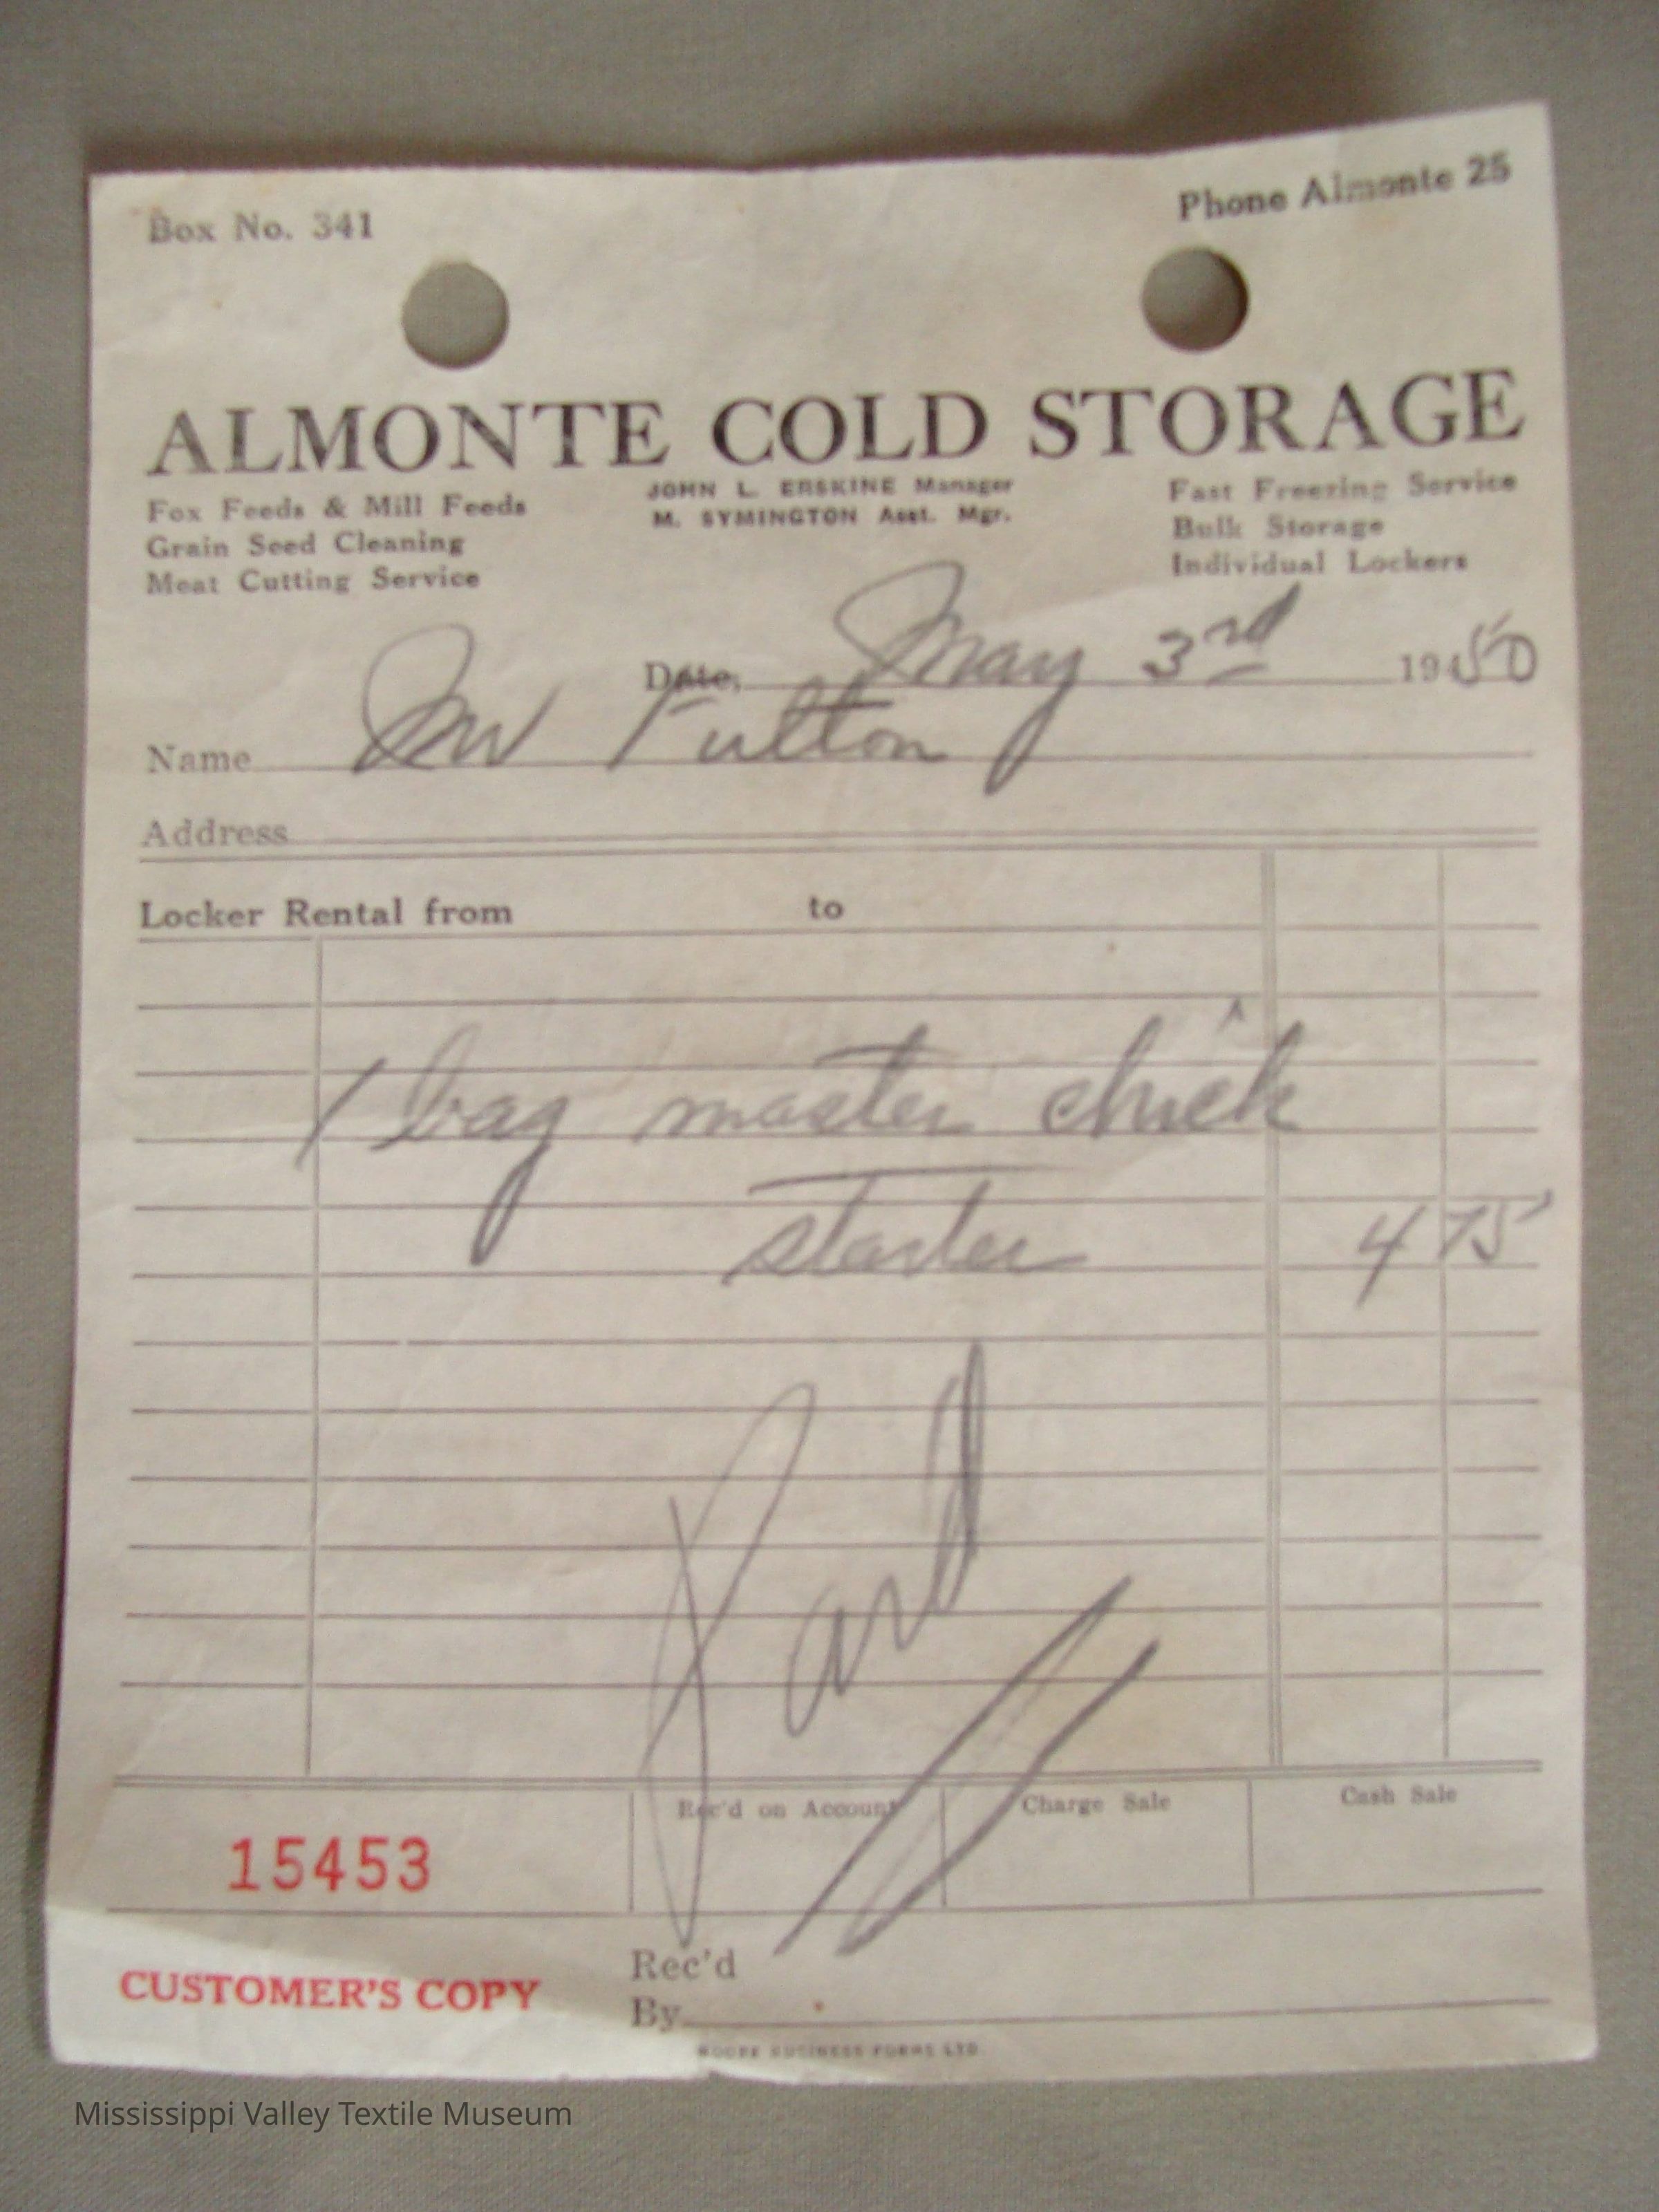 Box No. 341
Phone Almonte 25
ALMONTE COLD STORAGE
Fox Feeds & Mill Feeds
Grain Seed Cleaning
Meat Cutting Service
JOHN L. ERSKINE Manager
M. SYMINGTON Asst. Mgr.
Fast Freezing Service
Bulk Storage
Individual Lockers
Date, May 3rd 1950
Name Mr Fulton
Address
Locker Rental from to
1 bag master chick
starter 4 75
Paid
15453
Rec'd on Account
Charge Sale
Cash Sale
CUSTOMER'S COPY
Rec'd
By
MOORE BUSINESS FORMS LTD.
Mississippi Valley Textile Museum